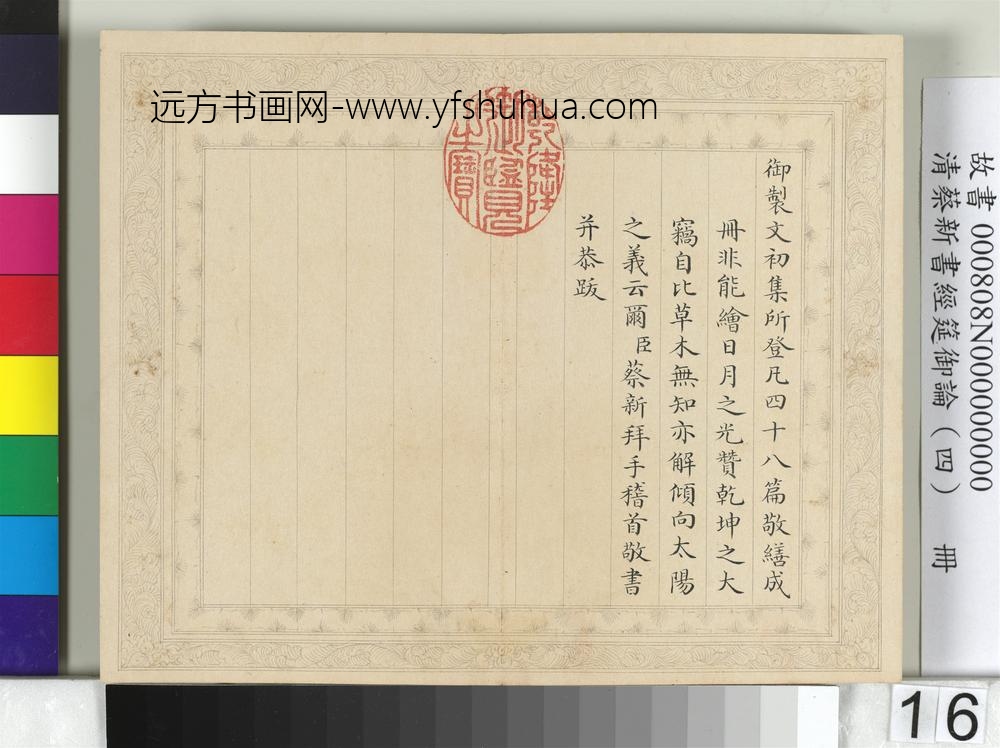 远方书画网-www.yfshuhua.com
御製文初集所登凡四十八篇敬繕成
冊非能繪日月之光贊乾坤之大
竊自比草木無知亦解傾向太陽
之義云爾臣蔡新拜手稽首敬書
并恭跋
乾隆御覽之寶
故書 000808N000000000
清蔡新書經筵御論（四） 冊
16